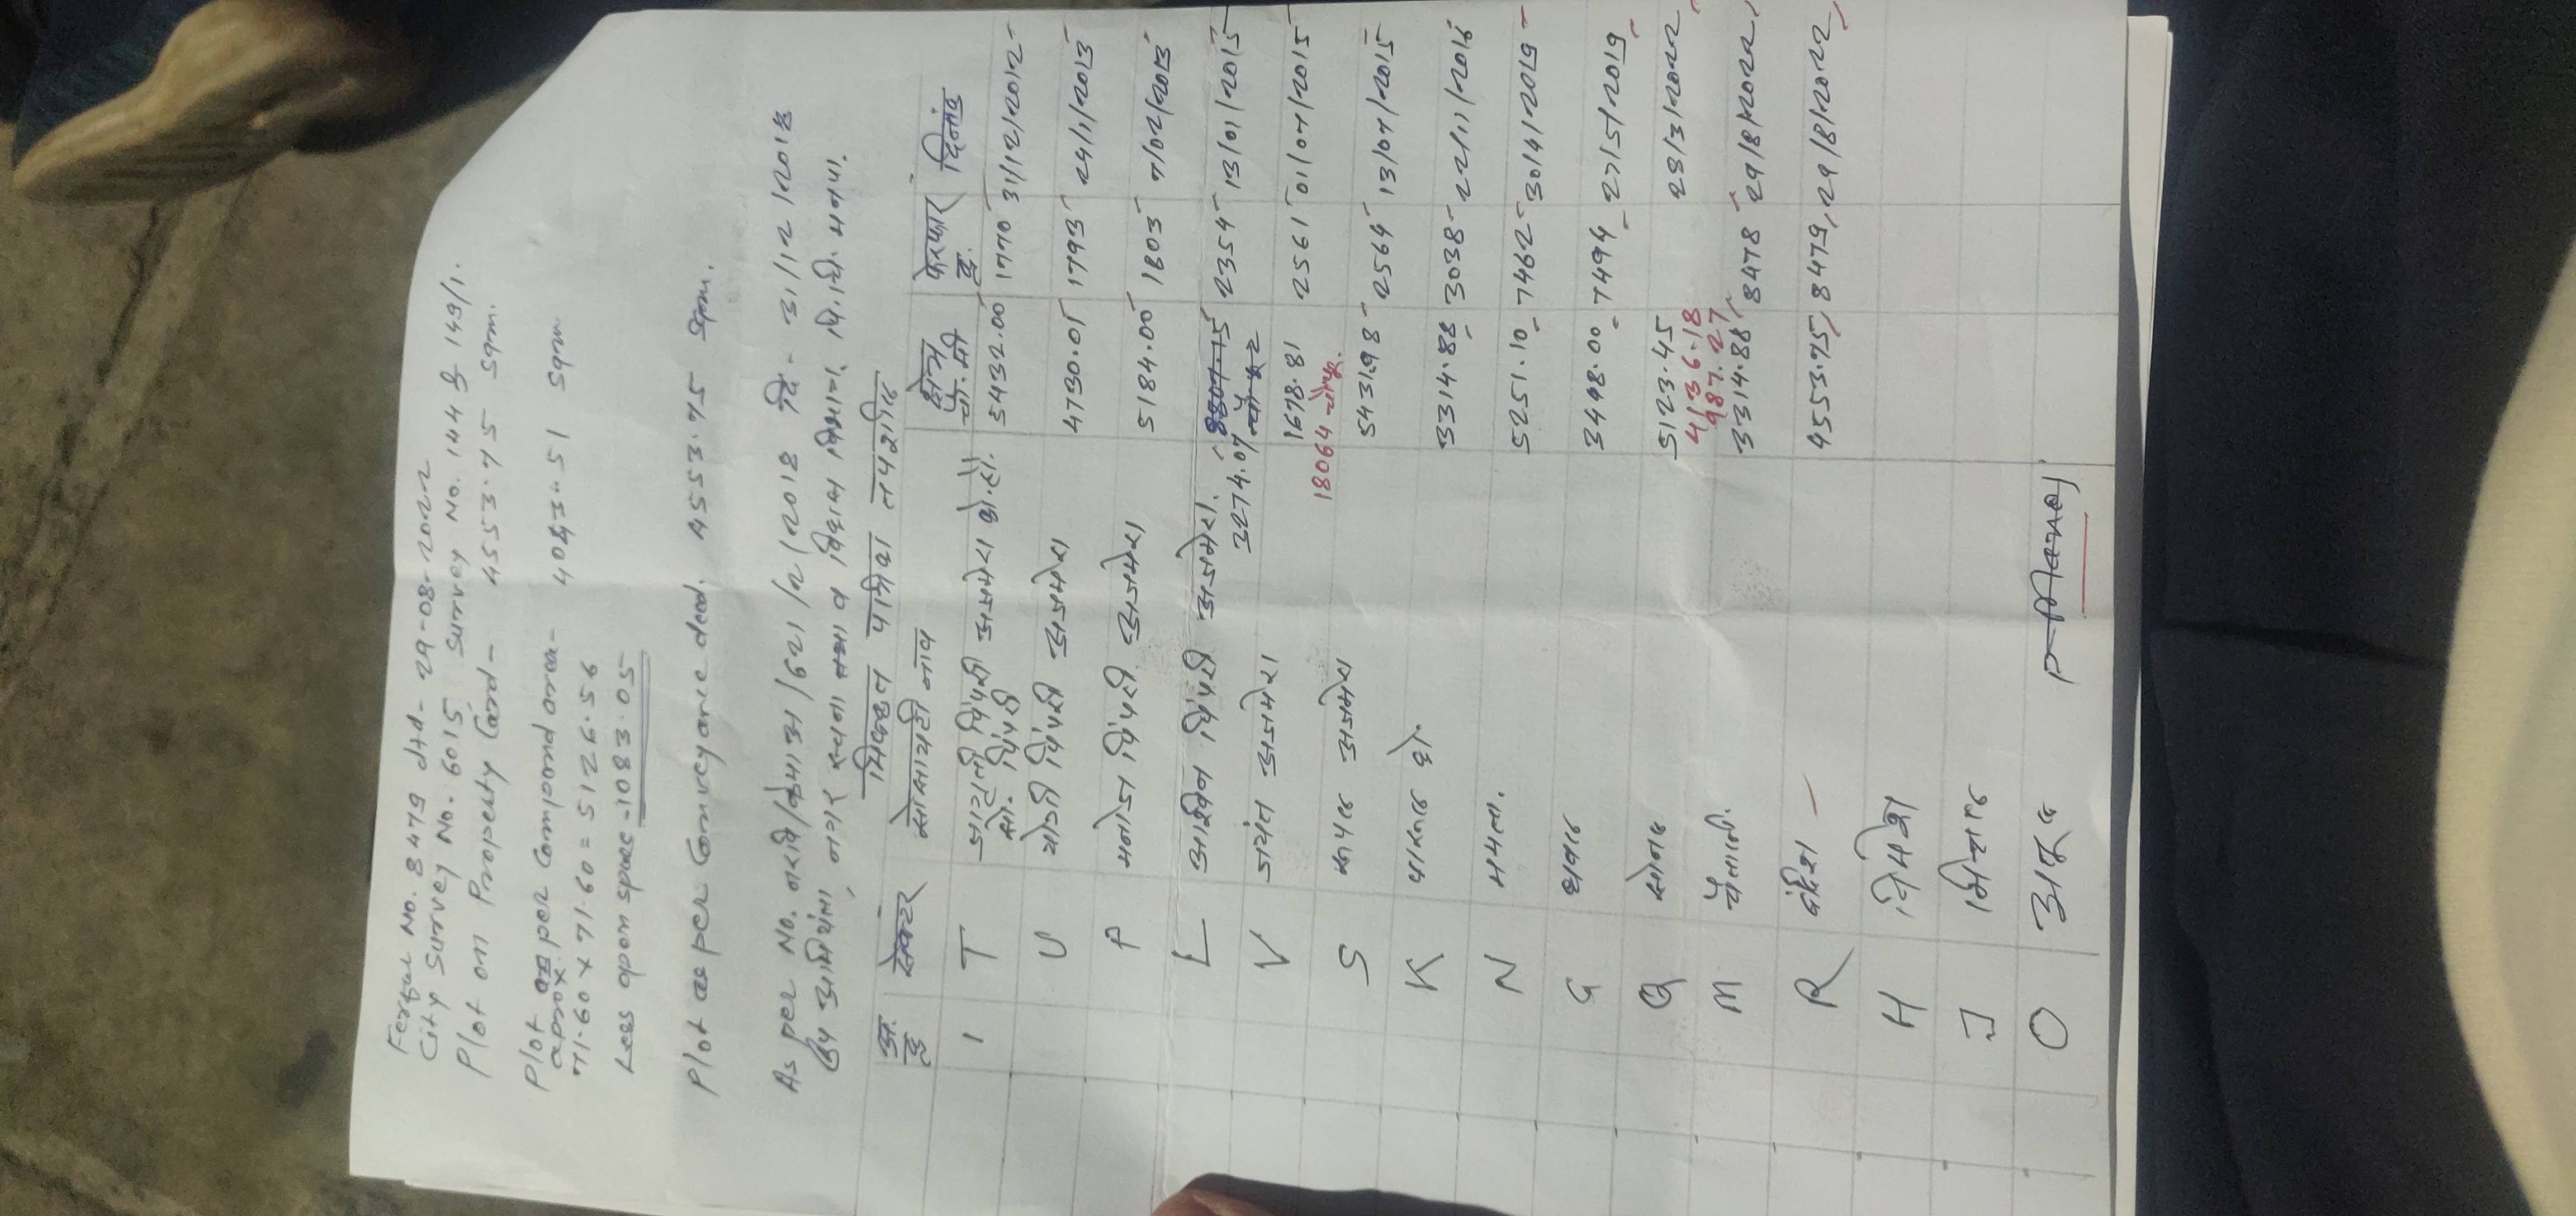 Ferfar No. 8479 dtd- 29-08-2022
City Survey No. 6015, Survey No. 144 & 149/1.
Plot on Property Card- 4553.75 sqm.
Plot as per Compond area- 4043.51 sqm
aprox.
71.60 x 71.60 = 5126.56
Less open space -1083.05
Plot as per Conveyance deed. 4553.75 sqm.
As per No. नरवि/ /621/2/2018 दि - 31/12/2018
उप अभियंता, नगर रचना व विकास विभाग, पिं.चिं. मनपा.
मिळकत पत्रिका तपशील
अ. क्र सेक्टर सोसायटी नाव क्षेत्र चौ.मी फेरफार क्र. दिनांक
1 T जागृती पिंपरी अजमेरा को.हौ. सो. पिंपरी 5432.00 1770 31/12/2012
U योगी पिंपरी अजमेरा 4730.05 1793 24/1/2013
P मनोज पिंपरी अजमेरा 5184.00 1803 7/02/2013
L आश्विन पिंपरी अजमेरा. 8807.15 2354 13/01/2015
3274.07
V जयंत अजमेरा 1678.81 2561 01/07/2015
18064 चौ.फू.
S रुपल अजमेरा 5431.98 2564 13/07/2015
K पारुल को. 3314.88 3038 22/11/2016
N ममता. 5251.10 7462 30/4/2019
G धवल 3448.00 7494 27/5/2019
Q सोनल 5123.45 28/3/2022
4136.18
987.27
M चैताली. 3314.88 8478 29/8/2022
R 4553.75, 8479, 29/8/2022
H निमेश
J मिनल
O P Manoj